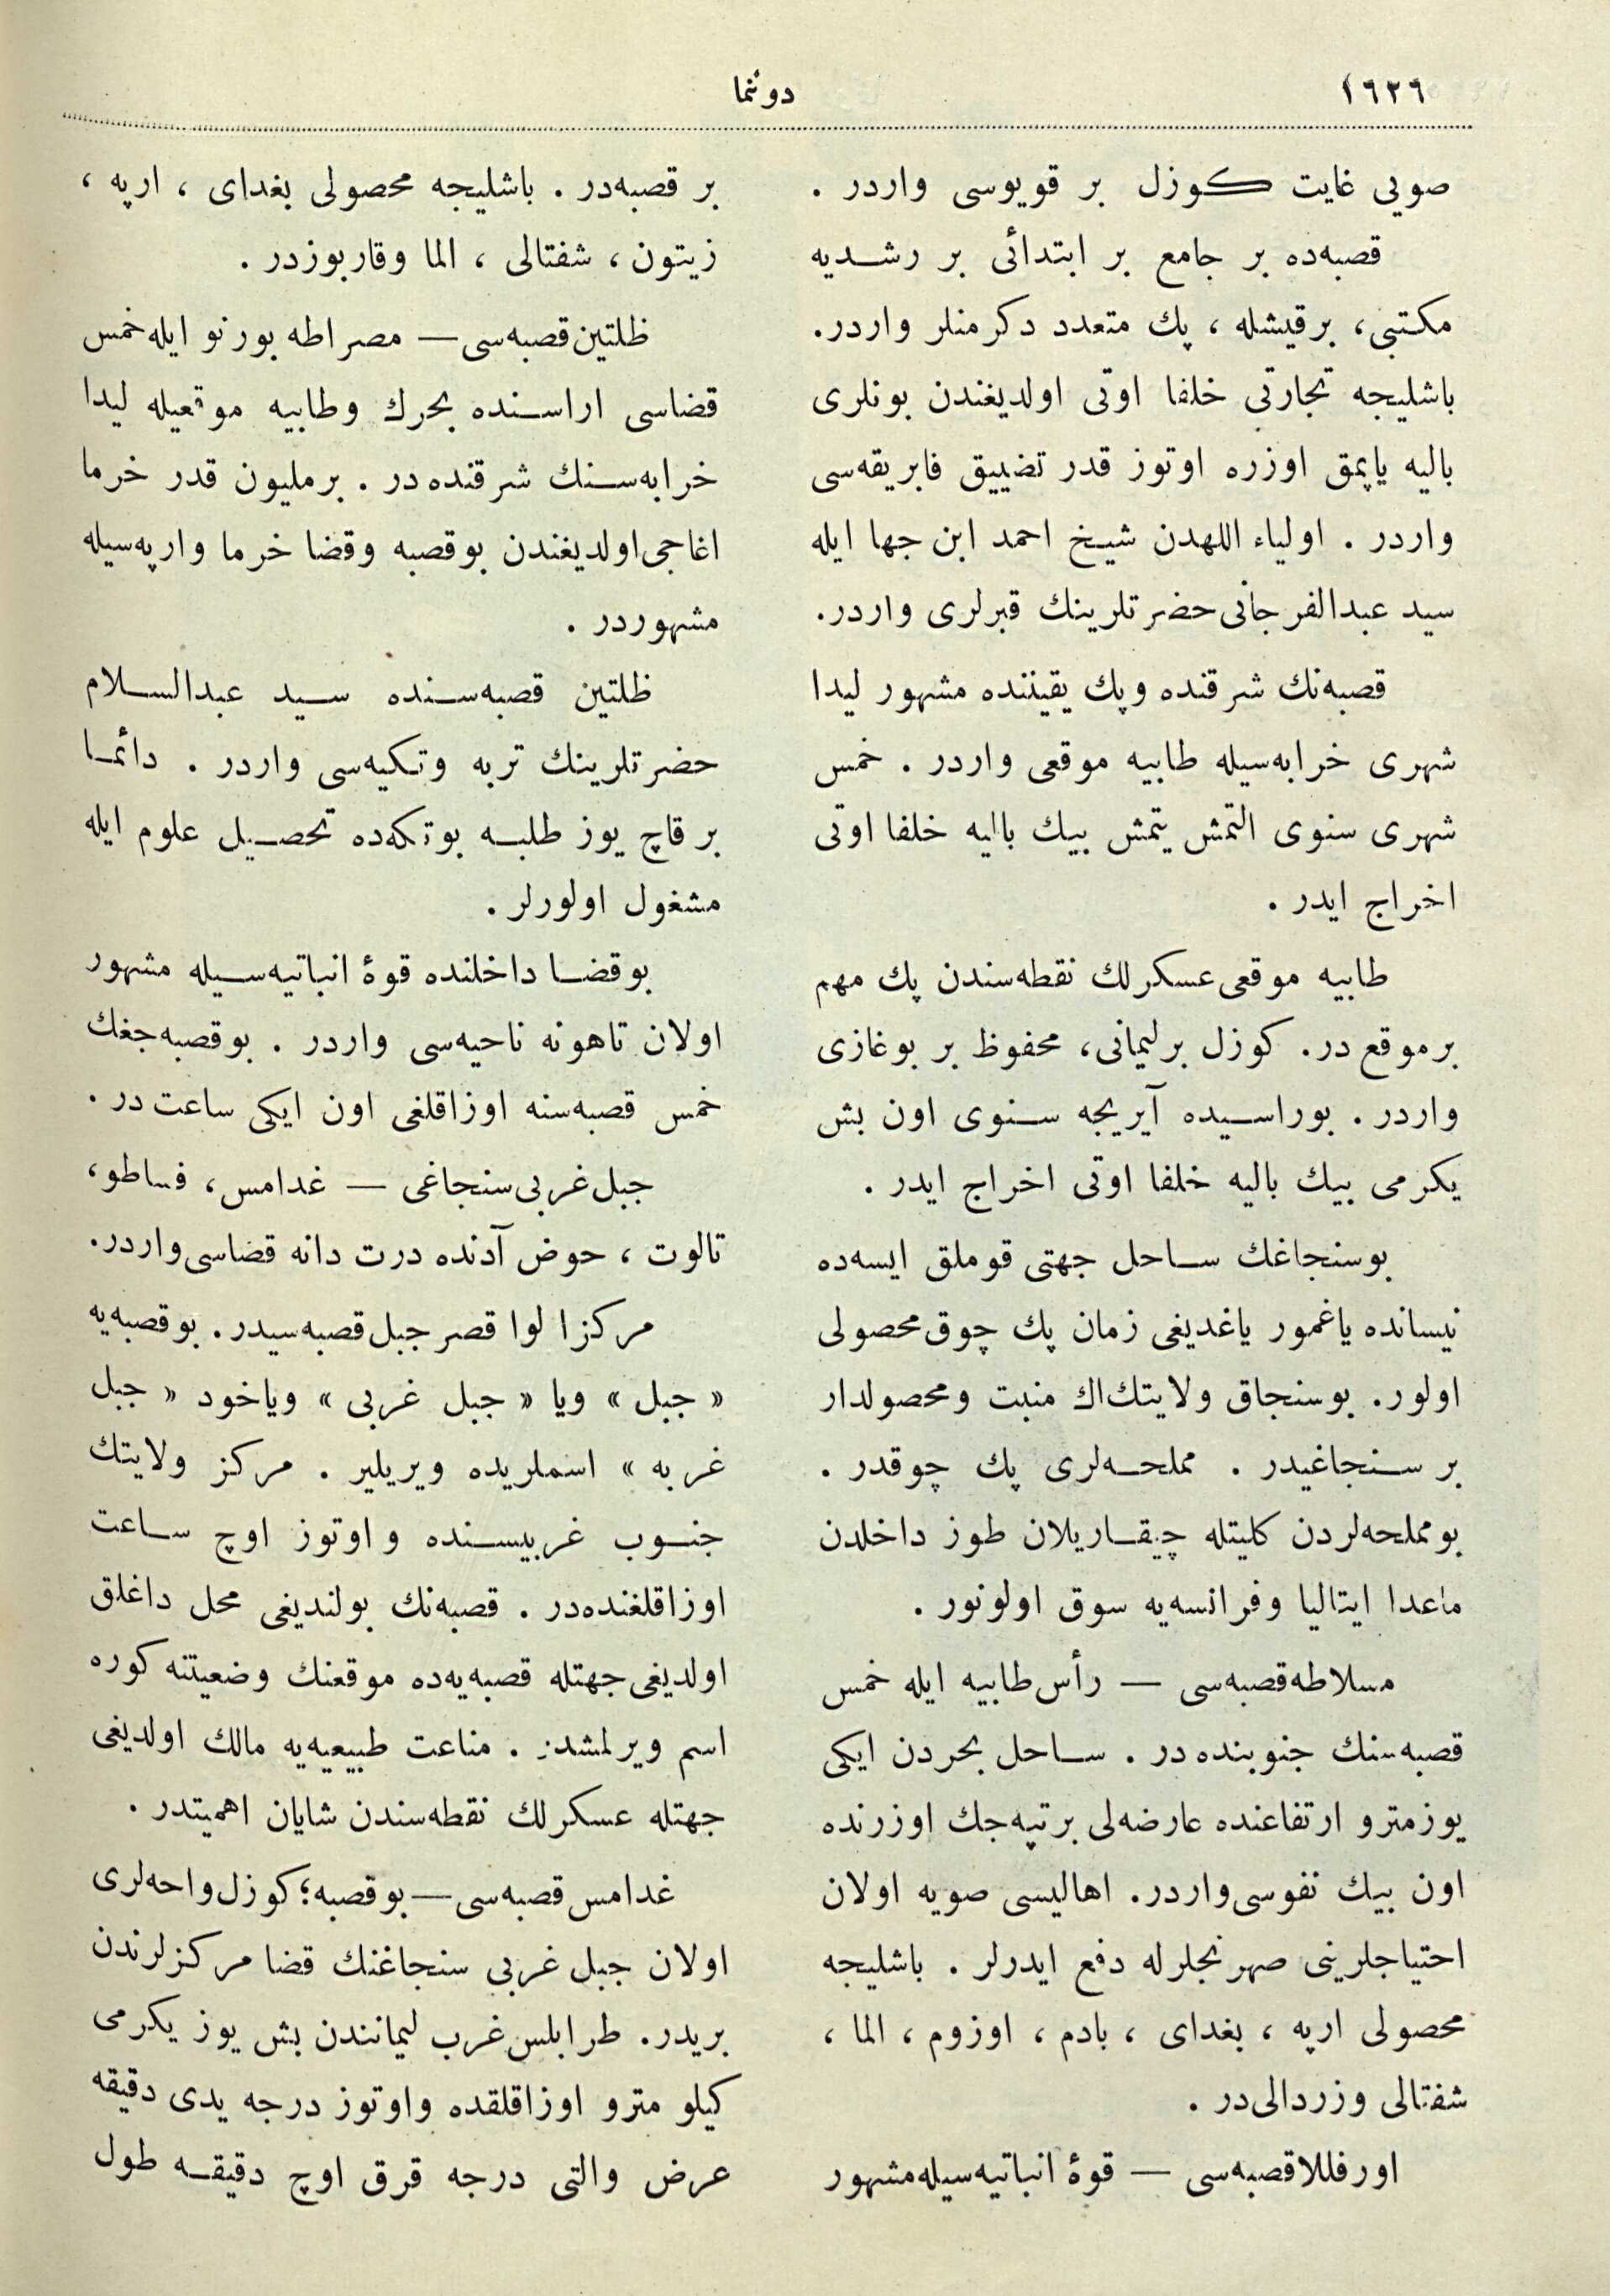 ١٦٢٦
دوننما
صويی غايت كوزل بر قويوسی واردر .
قصبه‌ده بر جامع بر ابتدائی بر رشديه
مكتبی، برقيشله ، پك متعدد دكرمنلر واردر.
باشليجه تجارتی خلفا اوتی اولديغندن بونلری
باليه ياپمق اوزره اوتوز قدر تضييق فابريقه‌سی
واردر . اولياء اللهدن شيخ احمد ابن جها ايله
سيد عبدالفرجانی حضرتلرينك قبرلری واردر.
قصبه‌نك شرقنده وپك يقيننده مشهور ليدا
شهری خرابه‌سيله طابيه موقعی واردر . خمس
شهری سنوی التمش يتمش بيك باليه خلفا اوتی
اخراج ايدر .
طابيه موقعی عسكرلك نقطه‌سندن پك مهم
برموقع در. كوزل برليمانی، محفوظ بر بوغازی
واردر . بوراسيده آيريجه سنوی اون بش
يكرمی بيك باليه خلفا اوتی اخراج ايدر .
بوسنجاغك ساحل جهتی قوملق ايسه‌ده
نيسانده ياغمور ياغديغی زمان پك چوق محصولی
اولور. بوسنجاق ولايتك‌اك منبت ومحصولدار
بر سنجاغيدر . مملحه‌لری پك چوقدر .
بومملحه‌لردن كليتله چيقاريلان طوز داخلدن
ماعدا ايتاليا وفرانسه‌يه سوق اولونور .
مسلاطه قصبه‌سی — رأس طابيه ايله خمس
قصبه‌سنك جنوبنده در . ساحل بحردن ايكی
يوزمترو ارتفاعنده عارضه‌لی برتپه‌جك اوزرنده
اون بيك نفوسی واردر. اهاليسی صويه اولان
احتياجلرينی صهرنجلرله دفع ايدرلر . باشليجه
محصولی ارپه ، بغدای ، بادم ، اوزوم ، الما ،
شفتالی وزردالی‌در .
اورفللا قصبه‌سی — قوۀ انباتيه‌سيله مشهور
بر قصبه‌در . باشليجه محصولی بغدای ، ارپه ،
زيتون ، شفتالی ، الما وقاربوزدر .
ظلتين قصبه‌سی — مصراطه بورنو ايله خمس
قضاسی اراسنده بحرك وطابيه موقعيله ليدا
خرابه‌سنك شرقنده‌در . برمليون قدر خرما
اغاجی اولديغندن بوقصبه وقضا خرما وارپه‌سيله
مشهوردر .
ظلتين قصبه‌سنده سيد عبدالسلام
حضرتلرينك تربه وتكيه‌سی واردر . دائما
بر قاچ يوز طلبه بوتكه‌ده تحصيل علوم ايله
مشغول اولورلر .
بوقضا داخلنده قوۀ انباتيه‌سيله مشهور
اولان تاهونه ناحيه‌سی واردر . بوقصبه‌جغك
خمس قصبه‌سنه اوزاقلغی اون ايكی ساعت در .
جبل غربی سنجاغی — غدامس، فساطو،
تالوت ، حوض آدنده درت دانه قضاسی واردر.
مركزا لوا قصر جبل قصبه‌سيدر. بوقصبه‌يه
« جبل » ويا « جبل غربی » وياخود « جبل
غربه » اسملريده ويريلير . مركز ولايتك
جنوب غربيسنده و اوتوز اوچ ساعت
اوزاقلغنده‌در . قصبه‌نك بولنديغی محل داغلق
اولديغی جهتله قصبه‌يه‌ده موقعنك وضعيتنه كوره
اسم ويرلمشدر . مناعت طبيعيه‌يه مالك اولديغی
جهتله عسكرلك نقطه‌سندن شايان اهميتدر .
غدامس قصبه‌سی — بوقصبه؛ كوزل واحه‌لری
اولان جبل غربی سنجاغنك قضا مركزلرندن
بريدر. طرابلس غرب ليمانندن بش يوز يكرمی
كيلو مترو اوزاقلقده واوتوز درجه يدی دقيقه
عرض والتی درجه قرق اوچ دقيقه طول